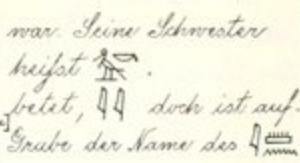 war. Seine Schwester
heißt .
betet, 𓇋𓇋 doch ist auf-
Grube der Name des 𓇋𓏠𓈖